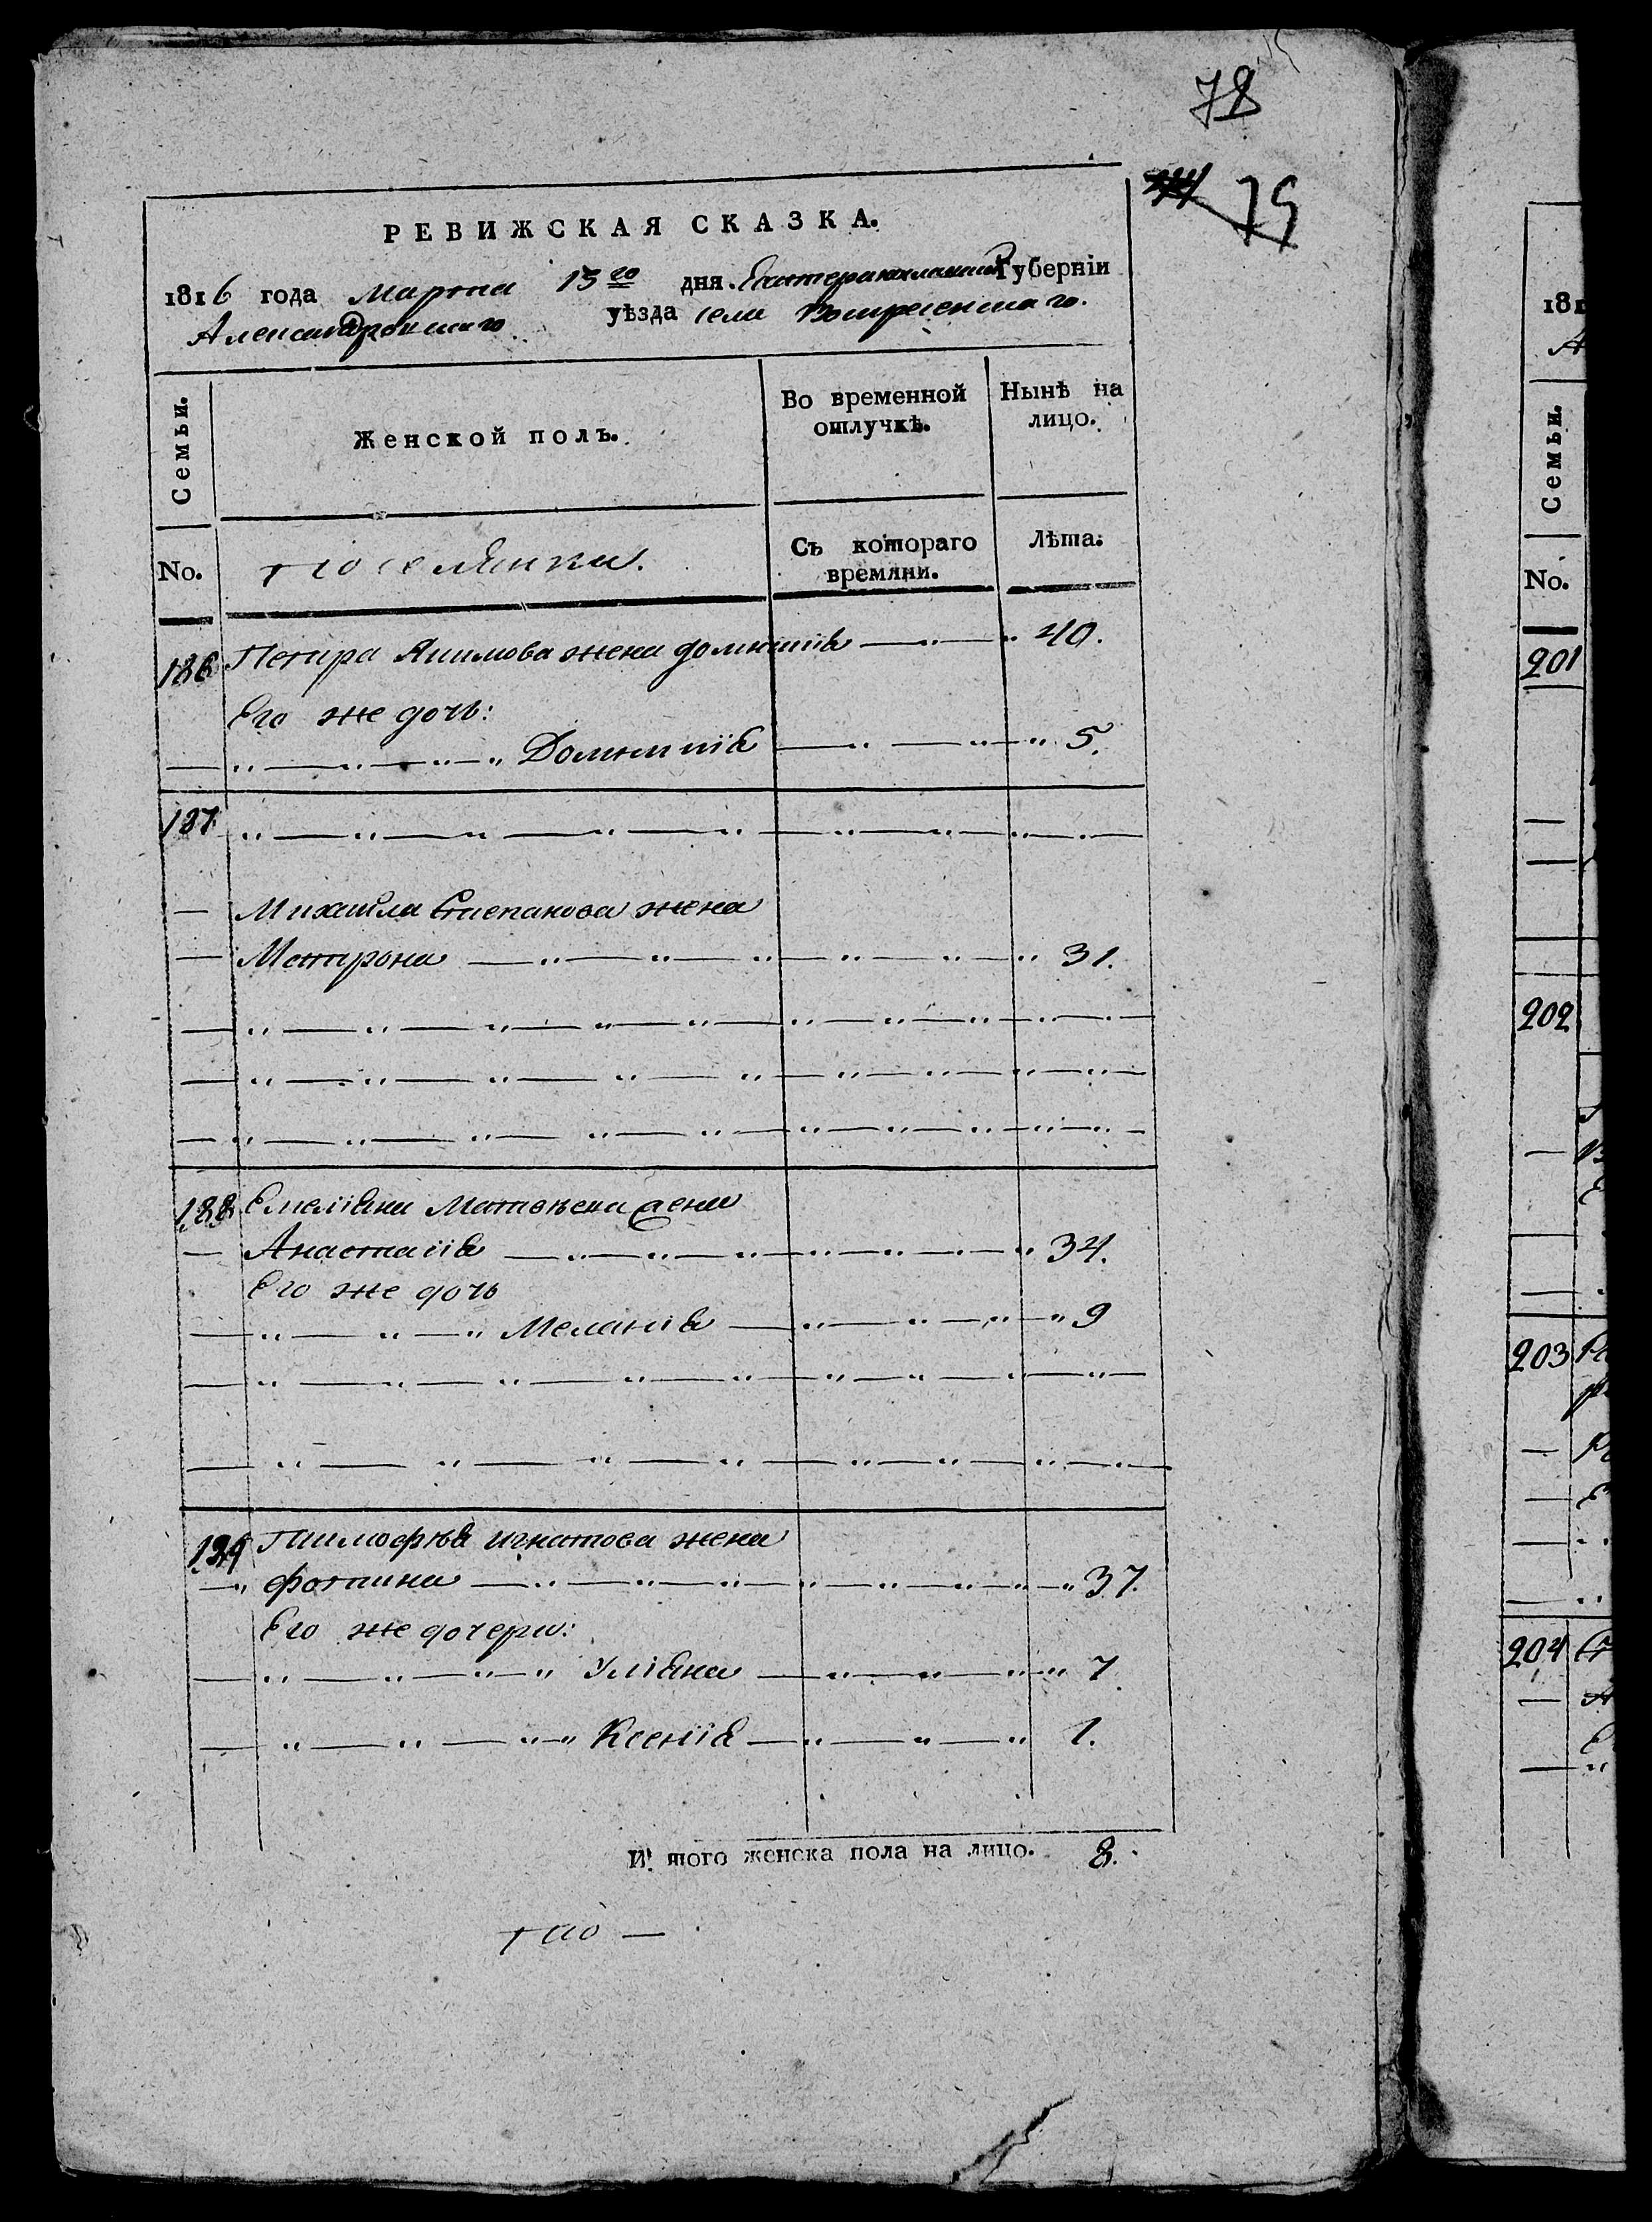 78
75
РЕВИЖСКАЯ СКАЗКА.
1816 года Марта 15го дня Екатеринославской Губерніи
Александровскаго уѣзда села Воскресенскаго.
Семьи.
Женской полъ.
Во временной отлучкѣ.
Нынѣ на лицо.
No.
Поселянки.
Съ котораго времяни.
Лѣта.
186 Петра Якимова жена домникія — " — " 40.
Его же дочь:
— " — " — " — " Домникія — " — " — " 5.
187 " — " — " — " — " — " — " — " — " —
— Михаила Степанова жена
— Матрона — " — " — " — " — " — " 31.
— " — " — " — " — " — " — " — " — " —
— " — " — " — " — " — " — " — " — " —
— " — " — " — " — " — " — " — " — " —
188 Емеліяна Матвѣева жена
— Анастасія — " — " — " — " — " — " 34.
Его же дочь
— " — " — " Меланія — " — " — " — " 9
— " — " — " — " — " — " — " — " — " —
— " — " — " — " — " — " — " — " —
189 Тимофѣя игнатова жена
— " фотина — " — " — " — " — " — " — " — " 37.
Его же дочери:
— " — " — " — " Уліяна — " — " — " " 7.
— " — " — " " Ксенія — " — " — " 1.
И того женска пола на лицо. 8.
201
202
203
204
181
Семьи.
No.